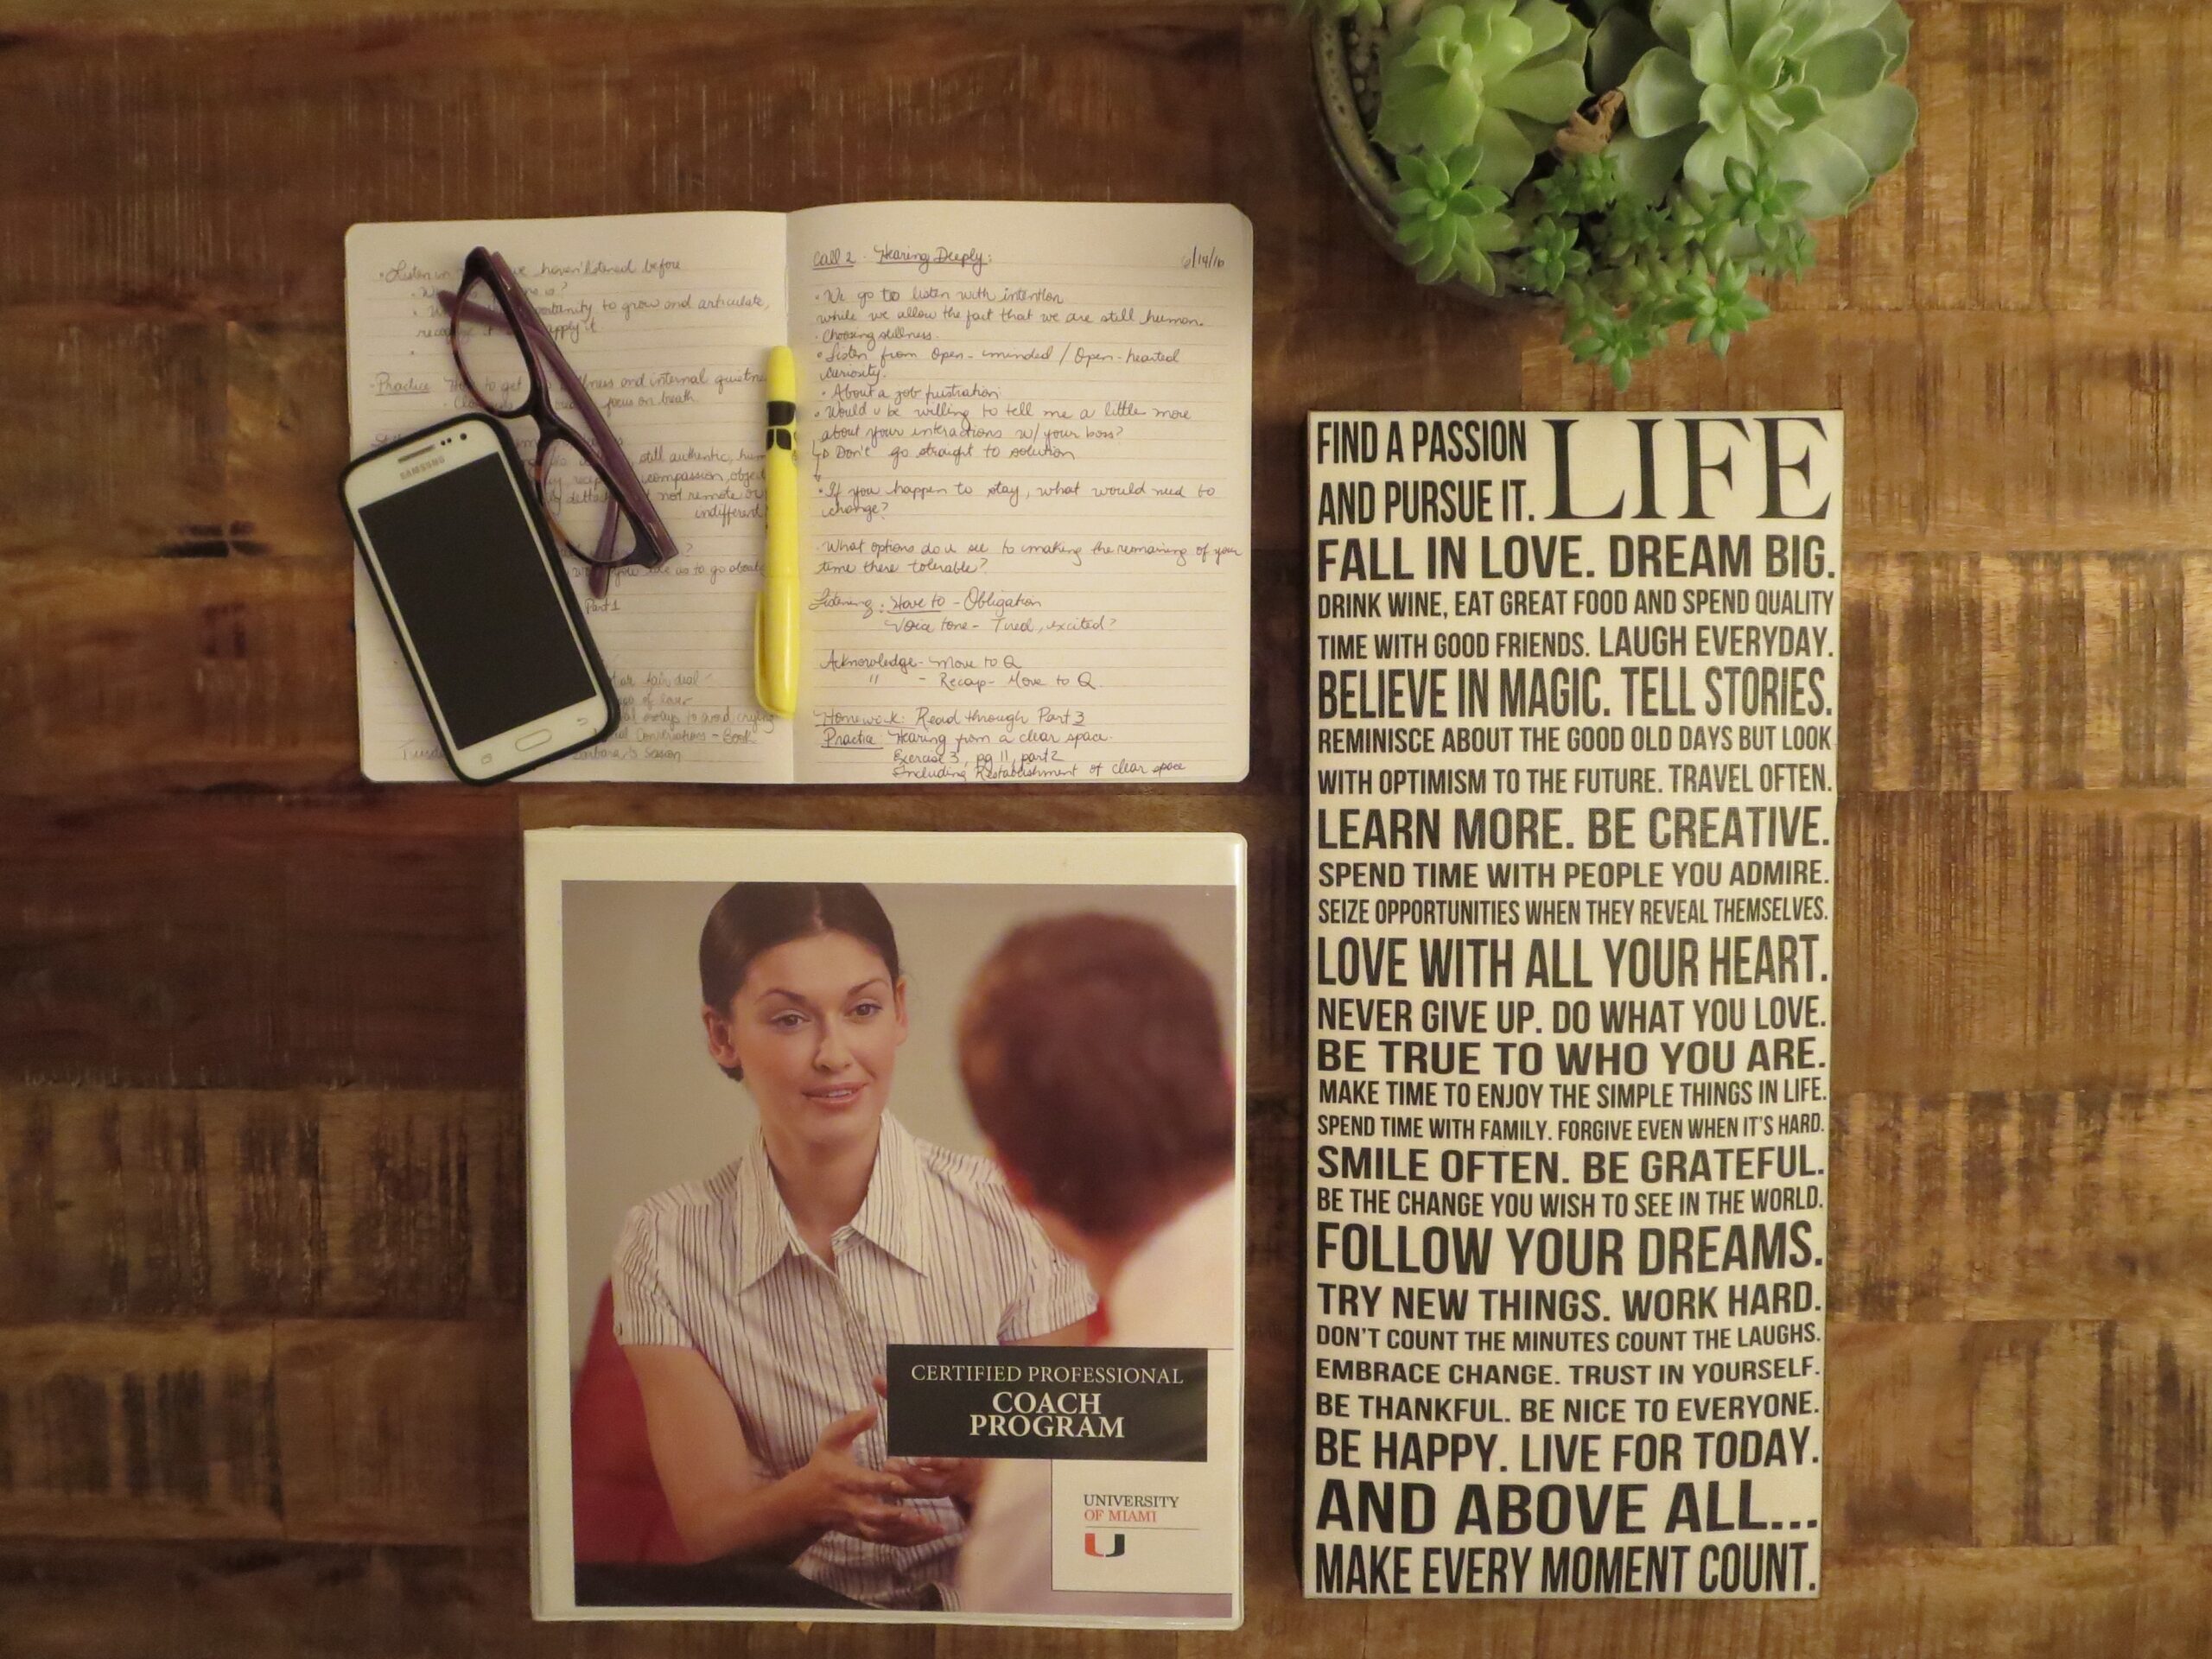 Listen in we haven't listened before
opportunity to grow and articulate,
recognize it apply it
Practice How to get stillness and internal quietness
focus on breath
still authentic, human
compassion, object
not remote or
indifferent
to go about
Part 1
fair deal -
of lover
ways to avoid crying
Conversations - Book
Tuesday Barbara's Session
SAMSUNG
Call 2 - Hearing Deeply: 6/14/16
• We go to listen with intention
while we allow the fact that we are still human.
• Choosing stillness.
• Listen from Open-minded / Open-hearted
curiosity.
• About a job frustration
• Would u be willing to tell me a little more
about your interactions w/ your boss?
Don't go straight to solution
• If you happen to stay, what would need to
change?
• What options do u see to making the remaining of your
time there tolerable?
Listening: Have to - Obligation
Voice tone - Tired, excited?
Acknowledge - Move to Q
" - Recap - Move to Q
Homework: Read through Part 3
Practice: Hearing from a clear space.
Exercise 3, pg 11, part 2
Including Restablishment of clear space
CERTIFIED PROFESSIONAL
COACH
PROGRAM
UNIVERSITY
OF MIAMI
U
FIND A PASSION LIFE
AND PURSUE IT.
FALL IN LOVE. DREAM BIG.
DRINK WINE, EAT GREAT FOOD AND SPEND QUALITY
TIME WITH GOOD FRIENDS. LAUGH EVERYDAY.
BELIEVE IN MAGIC. TELL STORIES.
REMINISCE ABOUT THE GOOD OLD DAYS BUT LOOK
WITH OPTIMISM TO THE FUTURE. TRAVEL OFTEN.
LEARN MORE. BE CREATIVE.
SPEND TIME WITH PEOPLE YOU ADMIRE.
SEIZE OPPORTUNITIES WHEN THEY REVEAL THEMSELVES.
LOVE WITH ALL YOUR HEART.
NEVER GIVE UP. DO WHAT YOU LOVE.
BE TRUE TO WHO YOU ARE.
MAKE TIME TO ENJOY THE SIMPLE THINGS IN LIFE.
SPEND TIME WITH FAMILY. FORGIVE EVEN WHEN IT'S HARD.
SMILE OFTEN. BE GRATEFUL.
BE THE CHANGE YOU WISH TO SEE IN THE WORLD.
FOLLOW YOUR DREAMS.
TRY NEW THINGS. WORK HARD.
DON'T COUNT THE MINUTES COUNT THE LAUGHS.
EMBRACE CHANGE. TRUST IN YOURSELF.
BE THANKFUL. BE NICE TO EVERYONE.
BE HAPPY. LIVE FOR TODAY.
AND ABOVE ALL...
MAKE EVERY MOMENT COUNT.